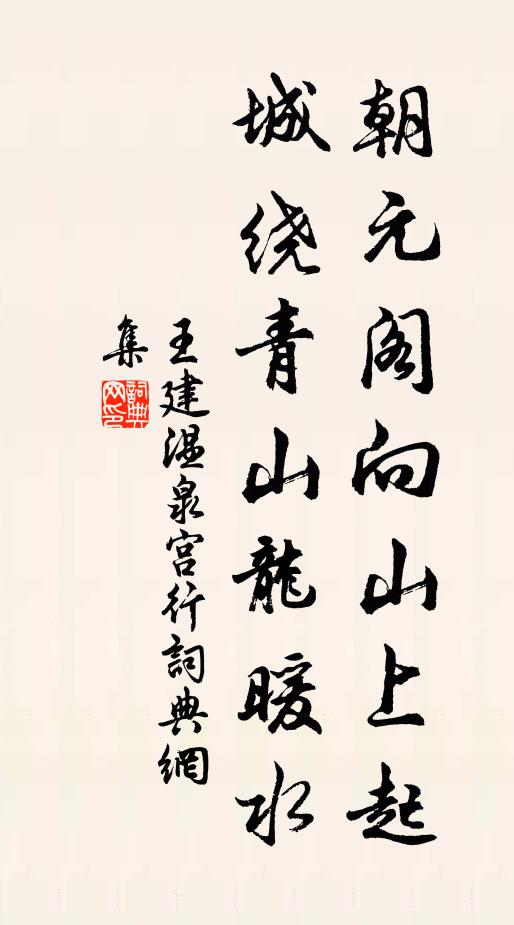 朝元阁向山上起
城绕青山龍暖水
王建溫泉宫行詞典網
集
詞典网印